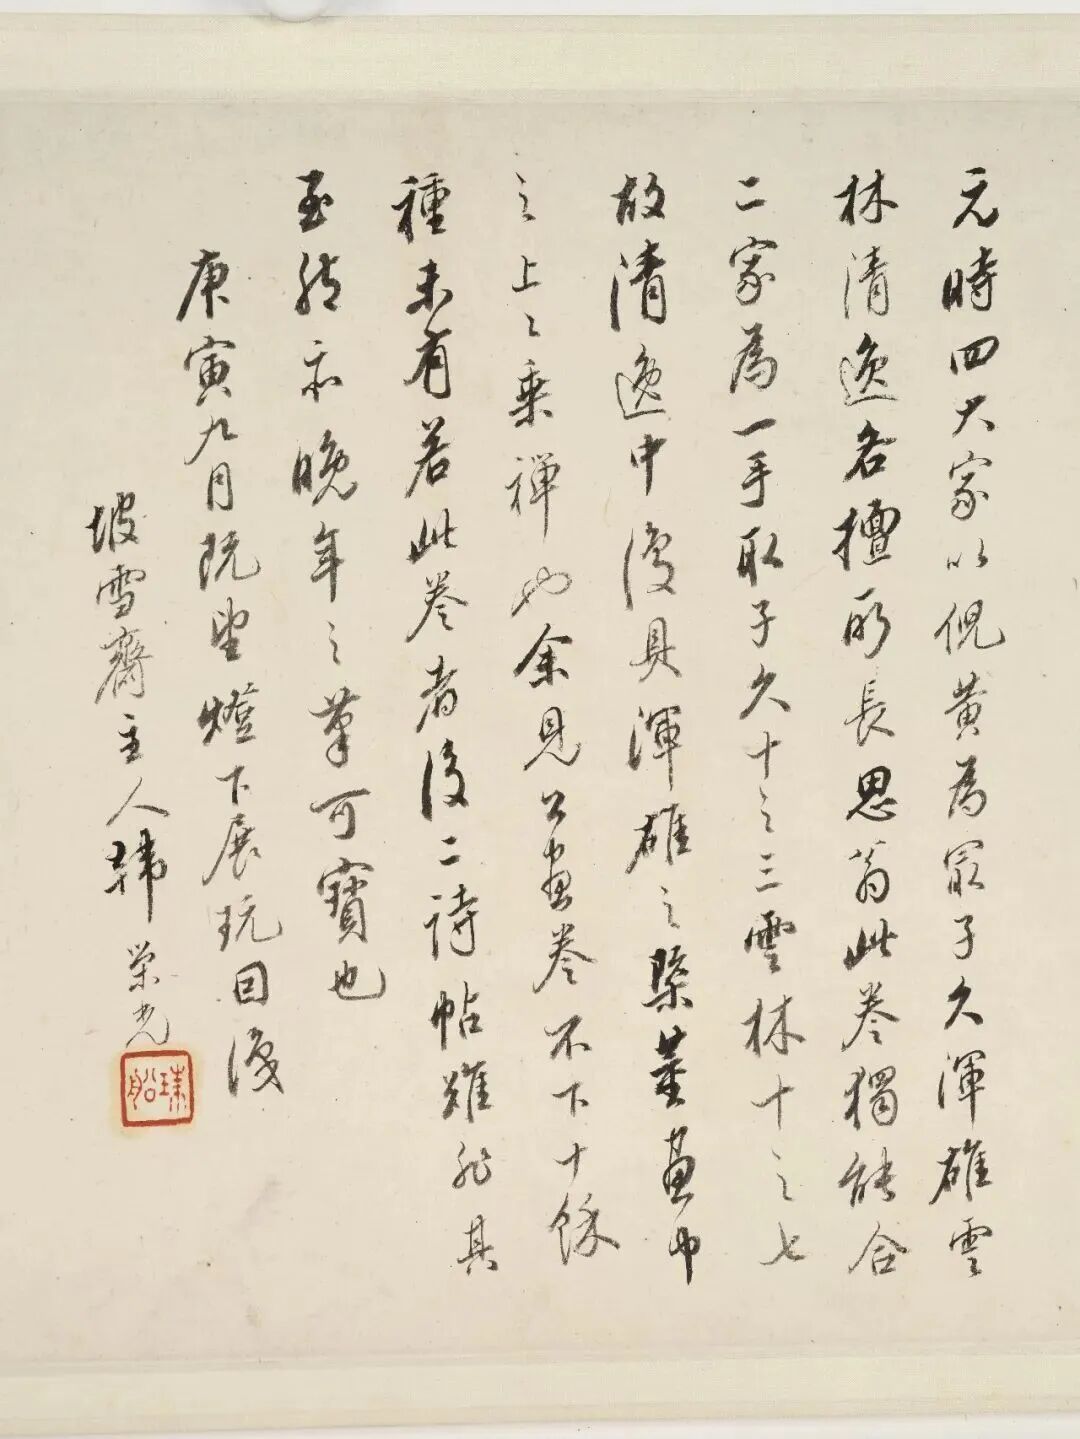 元時四大家以倪黃為冣子久渾雄雲
林清逸各擅所長思翁此卷獨能合
二家為一手取子久十之三雲林十之七
故清逸中復具渾雄之槩董畫中
之上上乘禪也余見公畫卷不下十餘
種未有若此卷者後二詩帖雖非其
至然亦晚年之筆可寶也
庚寅九月既望燈下展玩因識
坡雪齋主人韓榮光
珠船